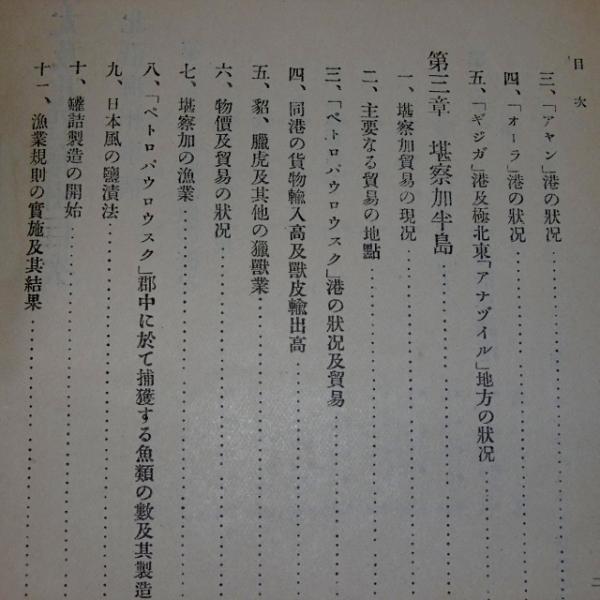 目次
三、「アヤン」港の狀況
四、「オーラ」港の狀況
五、「ギジガ」港及極北東「アナヅイル」地方の狀況
第三章 堪察加半島
一、堪察加貿易の現況
二、主要なる貿易の地點
三、「ペトロパウロウスク」港の狀況及貿易
四、同港の貨物輸入高及獸皮輸出高
五、貂、臘虎及其他の獵獸業
六、物價及貿易の狀況
七、堪察加の漁業
八、「ペトロパウロウスク」郡中に於て捕獲する魚類の數及其製造
九、日本風の鹽漬法
十、罐詰製造の開始
十一、漁業規則の實施及其結果